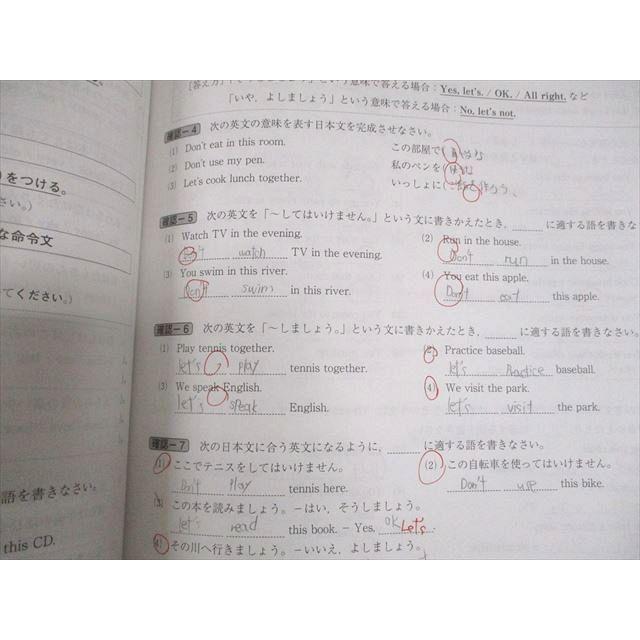 という意味で答える場合：Yes, let's. / OK. / All right. など
「いや，よしましょう」という意味で答える場合：No, let's not.
確認－4 次の英文の意味を表す日本文を完成させなさい。
(1) Don't eat in this room. この部屋で(
(2) Don't use my pen. 私のペンを(
(3) Let's cook lunch together. いっしょに(
をつける。
な命令文
てください。)
確認－5 次の英文を「～してはいけません。」という文に書きかえたとき，に適する語を書きな
(1) Watch TV in the evening. (2) Run in the house.
Don't watch TV in the evening. Don't run in the house.
(3) You swim in this river. (4) You eat this apple.
Don't swim in this river. Don't eat this apple.
確認－6 次の英文を「～しましょう。」という文に書きかえたとき，に適する語を書きなさい。
(1) Play tennis together. (2) Practice baseball.
let's play tennis together. let's Practice baseball.
(3) We speak English. (4) We visit the park.
let's speak English. let's visit the park.
確認－7 次の日本文に合う英文になるように，に適する語を書きなさい。
(1) ここでテニスをしてはいけません。 (2) この自転車を使ってはいけません。
Don't Play tennis here. Don't use this bike.
(3) この本を読みましょう。－はい，そうしましょう。
let's read this book. － Yes, OK Let's.
(4) その川へ行きましょう。－いいえ，よしましょう。
語を書きなさい。
this CD.